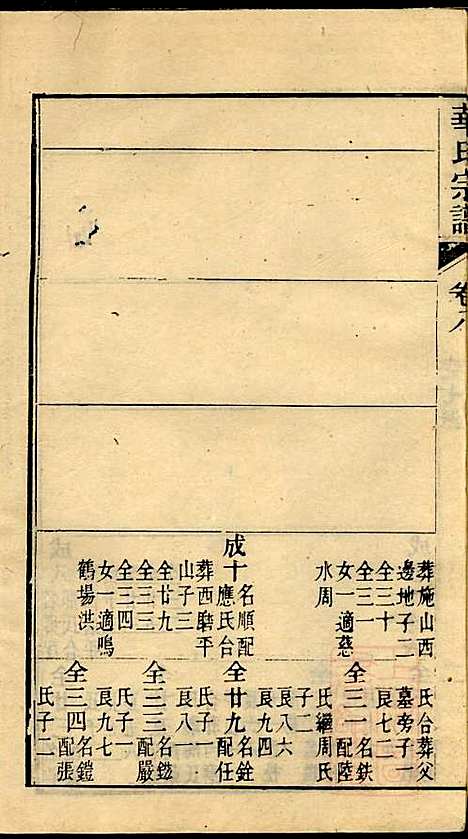 華氏宗譜
卷八
葬施山西
邊地子二
全三十二
全三一
女一適慈
水周
成十
名順配
應氏合
葬西磨平
山子三
全廿九
全三三
全三四
女一適鳴
鶴場洪
氏合葬父
墓旁子一
艮七二
全三一
名鈇
配陸
氏繼周氏
子二
艮八六
艮九四
全廿九
名銓
配任
氏子一
艮八一
全三三
名鎡
配嚴
氏子一
艮九七
全三四
名鎧
配張
氏子二